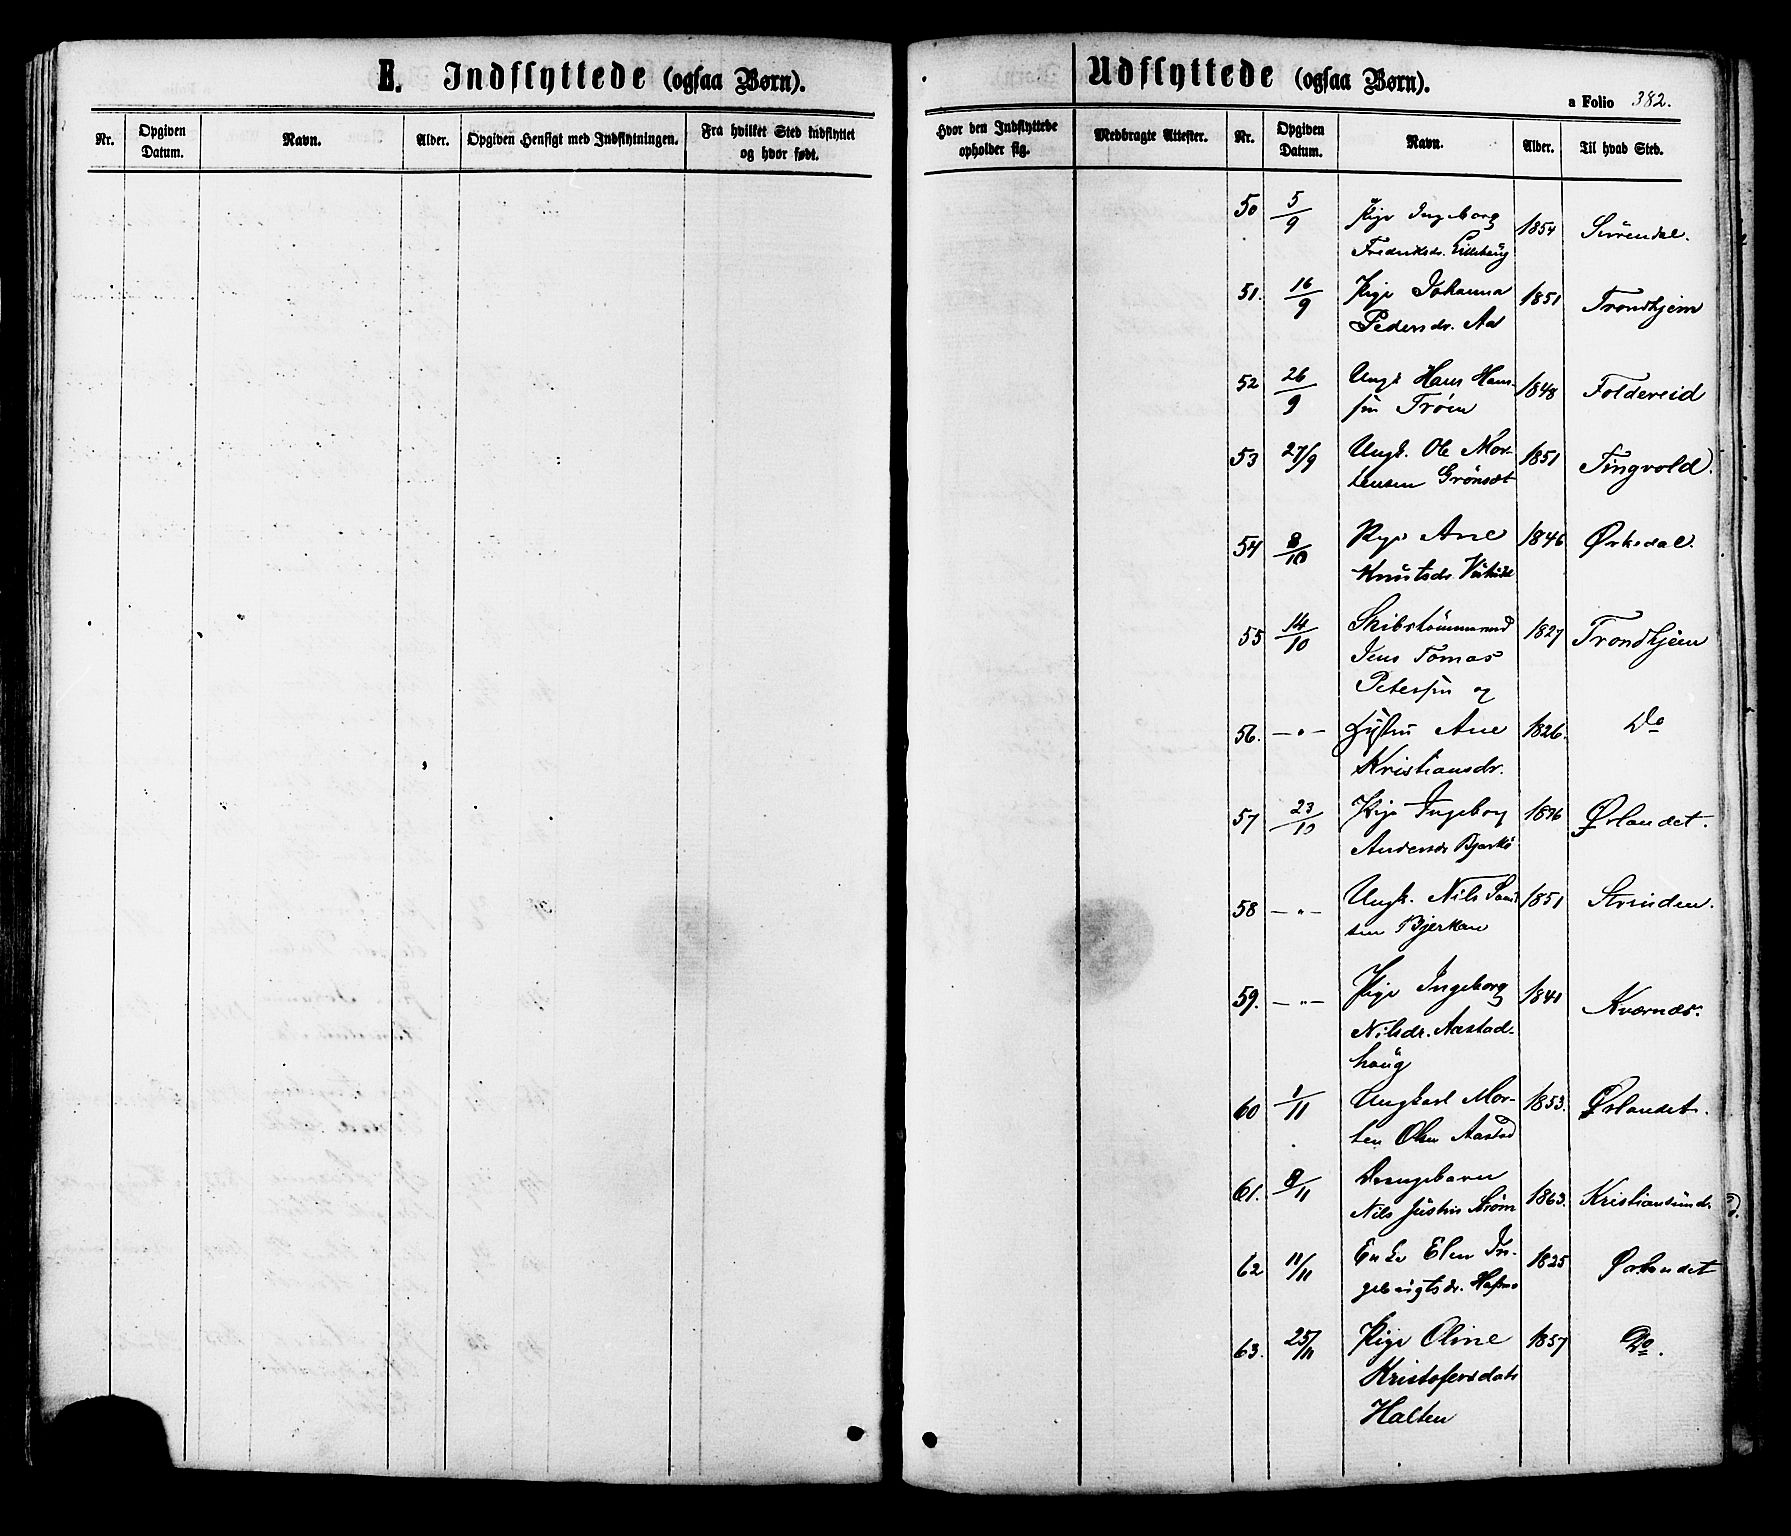 E. Indflyttede (ogsaa Børn).
Nr.
Opgiven Datum.
Navn.
Alder.
Opgiven Hensigt med Indflytningen.
Fra hvilket Sted indflyttet
og hvor født.
Udflyttede (ogsaa Børn).
a Folio 382.
Hvor den Indflyttede
opholder sig.
Medbragte Attester.
Nr.
Opgiven
Datum.
Navn.
Alder.
Til hvad Sted.
50 5/9 Pige Ingeborg 1854 Surendal.
Frederiksdr.
51. 16/9 Pige Johanna 1851 Trondhjem
Pedersdr. Aa
52 26/9 Ungk Hans Han- 1848 Foldereid
sen Trøen
53 27/9 Ungk. Ole Mor- 1851 Tingvold.
tensen Grønset
54 8/10 Pige Ane 1846 Ørkedal.
Knutsdr.
55 14/10 Skibstømmermand 1827 Trondhjem
Jens Tomas
Petersen og
56. —"— Hustru Ane 1826. Do
Kristiansdr.
57 23/10 Pige Ingeborg Ørlandet.
Andersdr Bjerkø
58 —"— Ungk. Nils 1851 Strinden.
sen Bjerkan
59. —"— Pige Ingeborg 1841 Kværnæs.
Nilsdr. Aastad-
haug
60 1/11 Ungkarl Mor- 1853. Ørlandet.
ten Olsen Aastad
61. 8/11 Drengebarn
Nils Justin Strøm 1863. Kristiansund.
62 11/11 Enke Elen In- 1825 Ørlandet
gebrigtsdr.
63. 25/11 Pige Oline 1857 Do.
Kristofersdatr
Halten